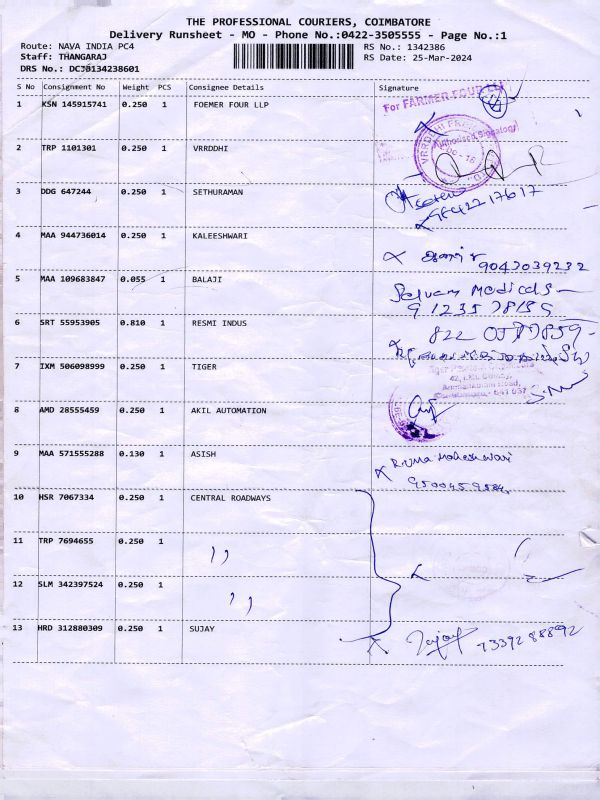 THE PROFESSIONAL COURIERS, COIMBATORE
Delivery Runsheet - MO - Phone No.:0422-3505555 - Page No.:1
Route: NAVA INDIA PC4 RS No.: 1342386
Staff: THANGARAJ RS Date: 25-Mar-2024
DRS No.: DCJB134238601
S No Consignment No Weight PCS Consignee Details Signature
1 KSN 145915741 0.250 1 FOEMER FOUR LLP
For FARMER FOUR LLP
Authorised Signatory
2 TRP 1101301 0.250 1 VRRDDHI
3 DDG 647244 0.250 1 SETHURAMAN
4 MAA 944736014 0.250 1 KALEESHWARI
9047039232
5 MAA 109683847 0.055 1 BALAJI
Selvam Medicals
6 SRT 55953905 0.810 1 RESMI INDUS
7 IXM 506098999 0.250 1 TIGER
8 AMD 28555459 0.250 1 AKIL AUTOMATION
9 MAA 571555288 0.130 1 ASISH Ruma Maheshwari
9500459584
10 HSR 7067334 0.250 1 CENTRAL ROADWAYS
11 TRP 7694655 0.250 1 ,,
12 SLM 342397524 0.250 1 ,,
13 HRD 312880309 0.250 1 SUJAY Sujay 7339288892